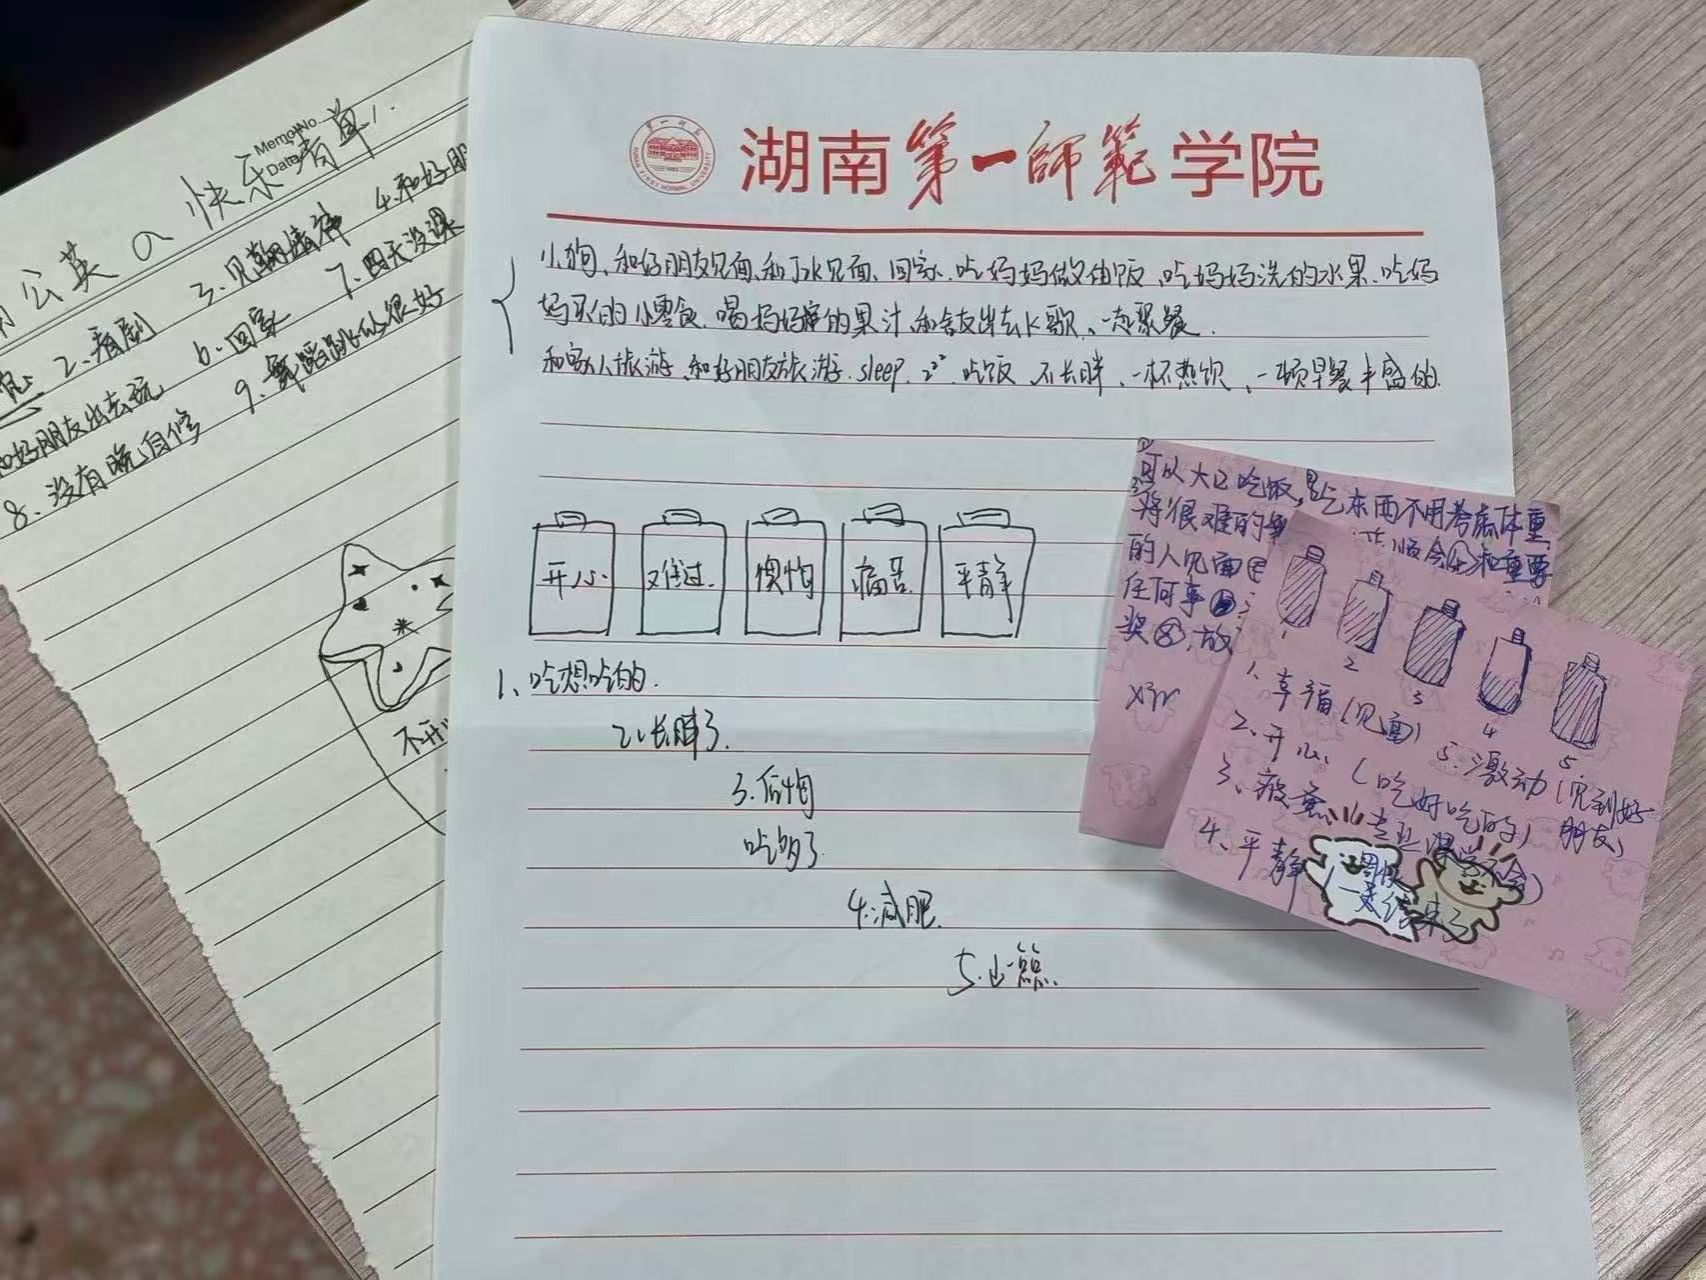 Memo No.
Date
公英の快乐清单
2、看剧
4.和好朋
6、回家
7、四天没课
和好朋友出去玩
9、舞蹈跳的很好
8、没有晚自修
不开
湖南第一师范学院
HUNAN FIRST NORMAL UNIVERSITY
小狗、和好朋友见面、和 见面、回家、吃妈妈做的饭、吃妈妈洗的水果、吃妈
妈买的小零食、喝妈妈 的果汁、和舍友出去K歌、一起聚餐.
和家人旅游、和好朋友旅游、sleep、 吃饭、不长胖、一杯热饮、一顿早餐丰盛的.
开心
难过
惧怕
痛苦
平静
1、吃想吃的.
2、长胖了.
3.后怕
吃够了
4.减肥.
可以大口吃饭,吃东西不用考虑体重
将很难的
的人见面
任何事
奖⑧,放
1 2 3 4 5
1、幸福(见面)
2、开心(吃好吃的)
3、疲惫(专业课学不会)
4、平静(一天结束了)
5、激动(见到好朋友)